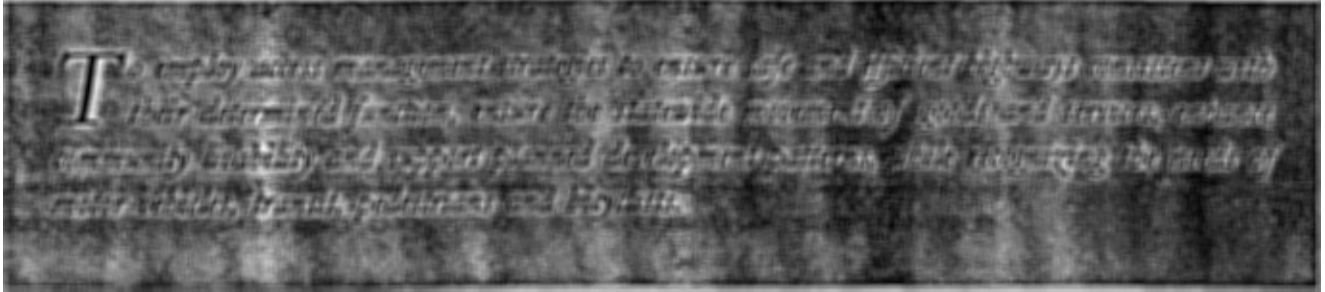 To employ access management strategies to ensure safe and efficient highways consistent with
their determined function, ensure the statewide movement of goods and services, enhance
community livability and support planned development patterns, while recognizing the needs of
motor vehicles, transit, pedestrians and bicyclists.